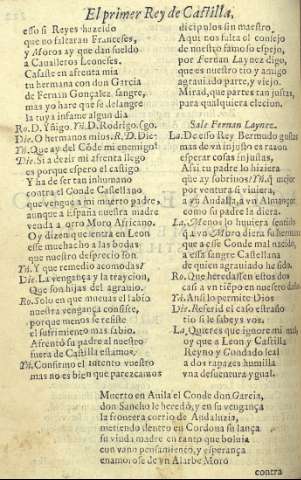 El primer Rey de Castilla,
esso si Reyes hazeldo
que no faltaran Franceses,
y Moros ay que dan sueldo
a Caualleros Leoneses.
Casaste en afrenta mia
tu hermana con don Garcia
de Fernan Gonçalez sangre,
mas yo hare que se desangre
la tuya infame algun dia
Ro. D. Yñigo. Th. D. Rodrigo.
Die. O hermanos mios. R. D. Die
Th. Que ay del Cōde mi enemigo
Die. Si a dezir mi afrenta llego
es porque espero el castigo
Y has de ser tan inhumano
contra el Conde Castellano
que vengue a mi muerto padre,
aunque a España nuestra madre
venda a otro Moro Africano.
Oy dizen que entra en Leon
esse muchacho a las bodas
que nuestro desprecio son.
Th. Y que remedio acomodas?
Die. La vengança y la traycion,
Que son hijas del agrauio.
Ro. Solo en que mueuas el labio
nuestra vengança consiste,
porque menos se resiste
el sufrimiento mas sabio.
Afrentò su padre al nuestro
fuera de Castilla estamos,
Th. Confirmo el intento vuestro
mas no es bien que parezcamos
dicipulos sin maestro,
Aqui nos falta el consejo
de nuestro famoso espejo,
por Fernan Laynez digo,
que es nuestro tio y amigo
agrauiado parte, y viejo.
Mirad, que partes tan justas,
para qualquiera eleccion.
Sale Fernan Laynez.
La. De esso Rey Bermudo gustas
mas de vn injusto es razon
esperar cosas injustas,
Assi tu padre lo hiziera
que ay sobrinos? Th. q̃ mejor
por ventura si viniera,
a vn Andalla, a vn Almançor
como su padre la diera.
La. Menos lo huuiera sentido
q̃ a vn Moro diera su hermana
que a esse Conde mal nacido,
a essa sangre Castellana
de quien agrauiado he sido.
Ro. Que heredassen estos dos
casa a vn tiēpo en nuestro daño
Th. Ansi lo permite Dios
Die. Referid el caso estraño
tio si le sabeys vos.
La. Quieres que ignore mi
oy que a Leon y Castilla
Reyno y Condado leal
a dos rapazes humilla
vna desuentura ygual.
Muerto en Auila el Conde don Garcia,
don Sancho le heredò, y en su vengança
la frontera corrio de Andaluzia,
metiendo dentro en Cordoua su lança
su viuda madre en tanto que boluia
con vano pensamiento, y esperança
enamorose de vn Alarbe Moro
contra